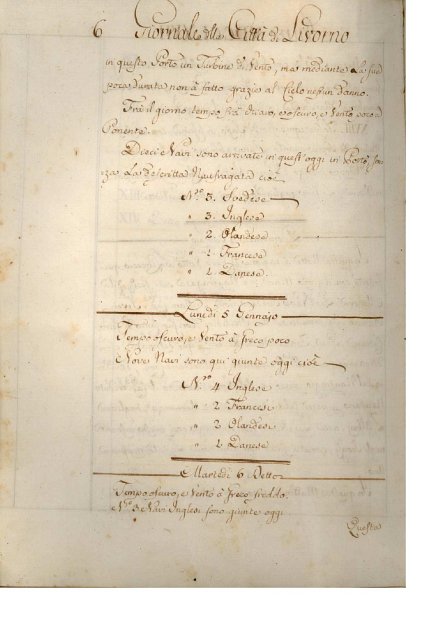 6 Giornale della Città di Livorno
in questo Porto un Turbine di Vento, ma mediante la sua
poca durata non à fatto grazie al Cielo nessun danno.
Fra il giorno tempo frà chiaro, e oscuro, e Vento poco a
Ponente.
Dieci Navi sono arrivate in quest'oggi in Porto sen
za la descritta Naufragata cioè
N.ro 3. Svedese
" 3. Inglese
" 2. Olandese
" 1. Francese
" 1. Danese.
Lunedì 5 Gennajo
Tempo oscuro, e Vento à Greco poco
Nove Navi sono qui giunte oggi cioè
N.ro 4 Inglese
" 2 Francesi
" 2 Olandesi
" 1 Danese
Martedì 6 Detto
Tempo oscuro, e Vento à Greco freddo.
N.ro 3 Navi Inglesi sono giunte oggi
Questa